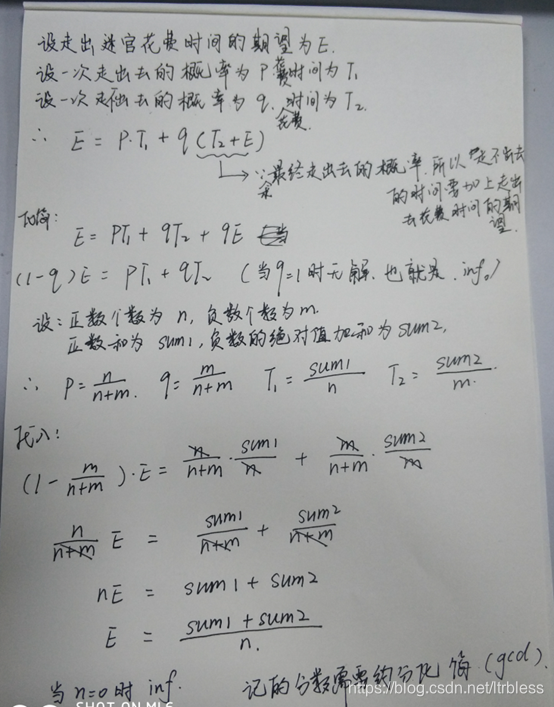 设走出迷宫花费时间的期望为E.
设一次走出去的概率为P 花费时间为T₁
设一次走不出去的概率为q. 花费时间为T₂.
∴ E = P·T₁ + q(T₂+E)
∵最终走出去的概率 所以 走不出去
的时间需要加上走出
去花费时间的期
望.
化简:
E = PT₁ + qT₂ + qE
(1-q)E = PT₁ + qT₂ (当q=1时无解. 也就是 inf。)
设:正数个数为n, 负数个数为m.
正数和为sum1, 负数的绝对值加和为sum2,
∴ P = n/(n+m). q = m/(n+m) T₁ = sum1/n T₂ = sum2/m.
代入:
(1 - m/(n+m))·E = n/(n+m)·sum1/n + m/(n+m)·sum2/m
n/(n+m) E = sum1/(n+m) + sum2/(n+m)
nE = sum1 + sum2
E = (sum1 + sum2)/n.
当n=0时 inf. 记的分数需要约分化简 (gcd).
https://blog.csdn.net/ltrbless
SHOT ON MI 6